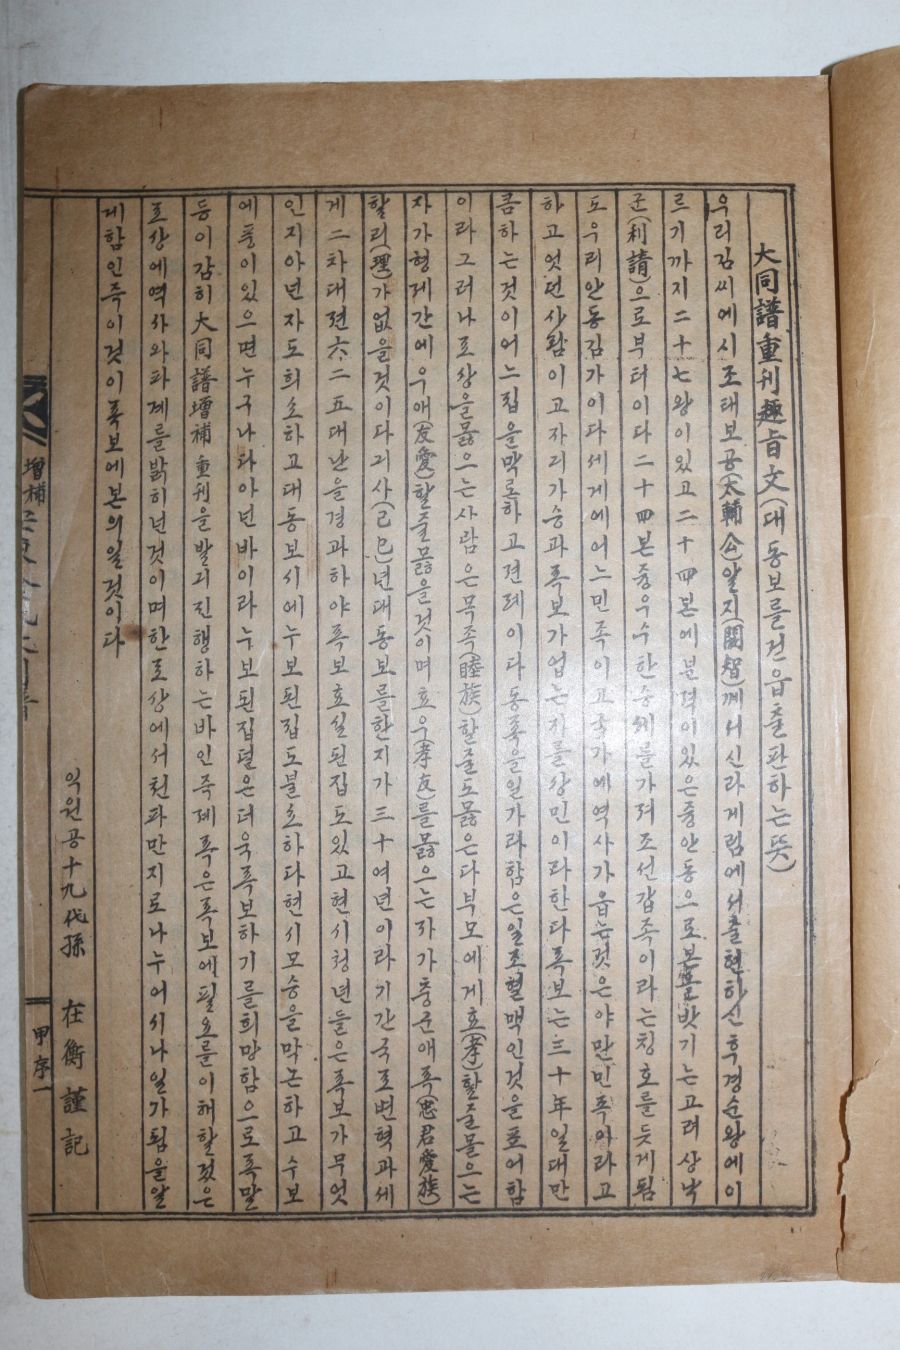 大同譜重刊趣旨文(대동보를건읍출판하는뜻)
우리김씨에시조태보공(太輔公)알지(閼智)께서신라게림에서출현하신후경순왕에이
르기까지二十七왕이있고二十四본에분적이있은중안동으로본을밧기는고려상낙
군(利請)으로부터이다二十四본중우수한숭예를가져조선갑족이라는칭호를듯게됨
도우리안동김가이다세게에어느민족이고국가에역사가읍는것은야만민족이라고
하고엇던사람이고자리가승과족보가업는자를상민이라한다족보는三十年일대만
큼하는것이어느집을막론하고전례이다동족을일가라함은일조혈맥인것을표어함
이라그러나조상을몲으는사람은목족(睦族)할줄도몲은다부모에게효(孝)할줄몰으는
자가형제간에우애(友愛)할줄몲을것이며효우(孝友)를몲으는자가충군애족(忠君愛族)
할리(理)가없을것이다기사(己巳)년대동보를한지가三十여년이라기간국토변혁과세
게二차대전六二五대난을경과하야족보효실된집도있고현시청년들은족보가무엇
인지아년자도희소하고대동보시에누보된집도불소하다현시모숭을막논하고수보
에풍이있으면누구나타아년바이라누보된집편은더욱족보하기를희망함으로족말
등이감히大同譜增補重刊을발기진행하는바인즉제족은족보에필요를이해할젔은
조상에역사와파게를밝히넌것이며한조상에서천파만지로나누어시나일가됨을알
게함인즉이것이족보에본의일것이다
익원공十九代孫 在衡謹記
增補
甲序一